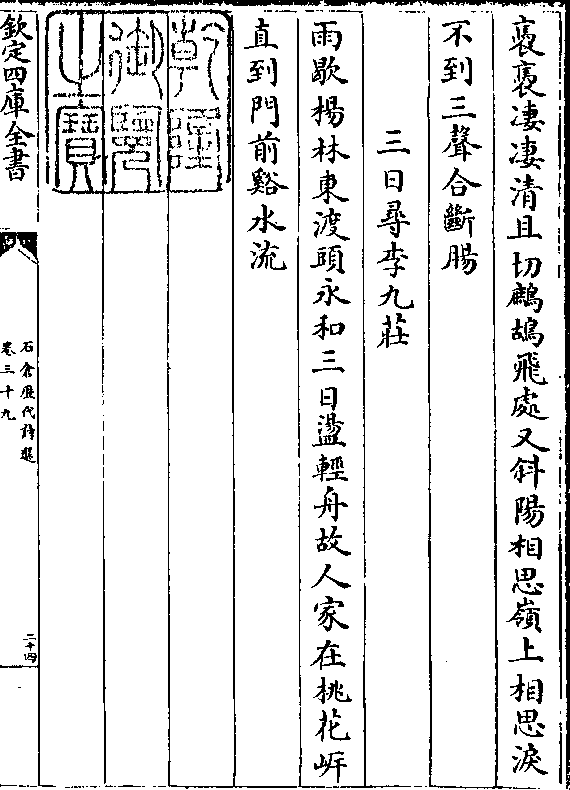 裊裊凄凄清且切鷓鴣飛處又斜陽相思嶺上相思淚
不到三聲合斷腸
三日尋李九莊
雨歇楊林東渡頭永和三日盪輕舟故人家在桃花岍
直到門前谿水流
乾隆御覽之寶
欽定四庫全書
石倉歷代詩選
卷三十九
二十四